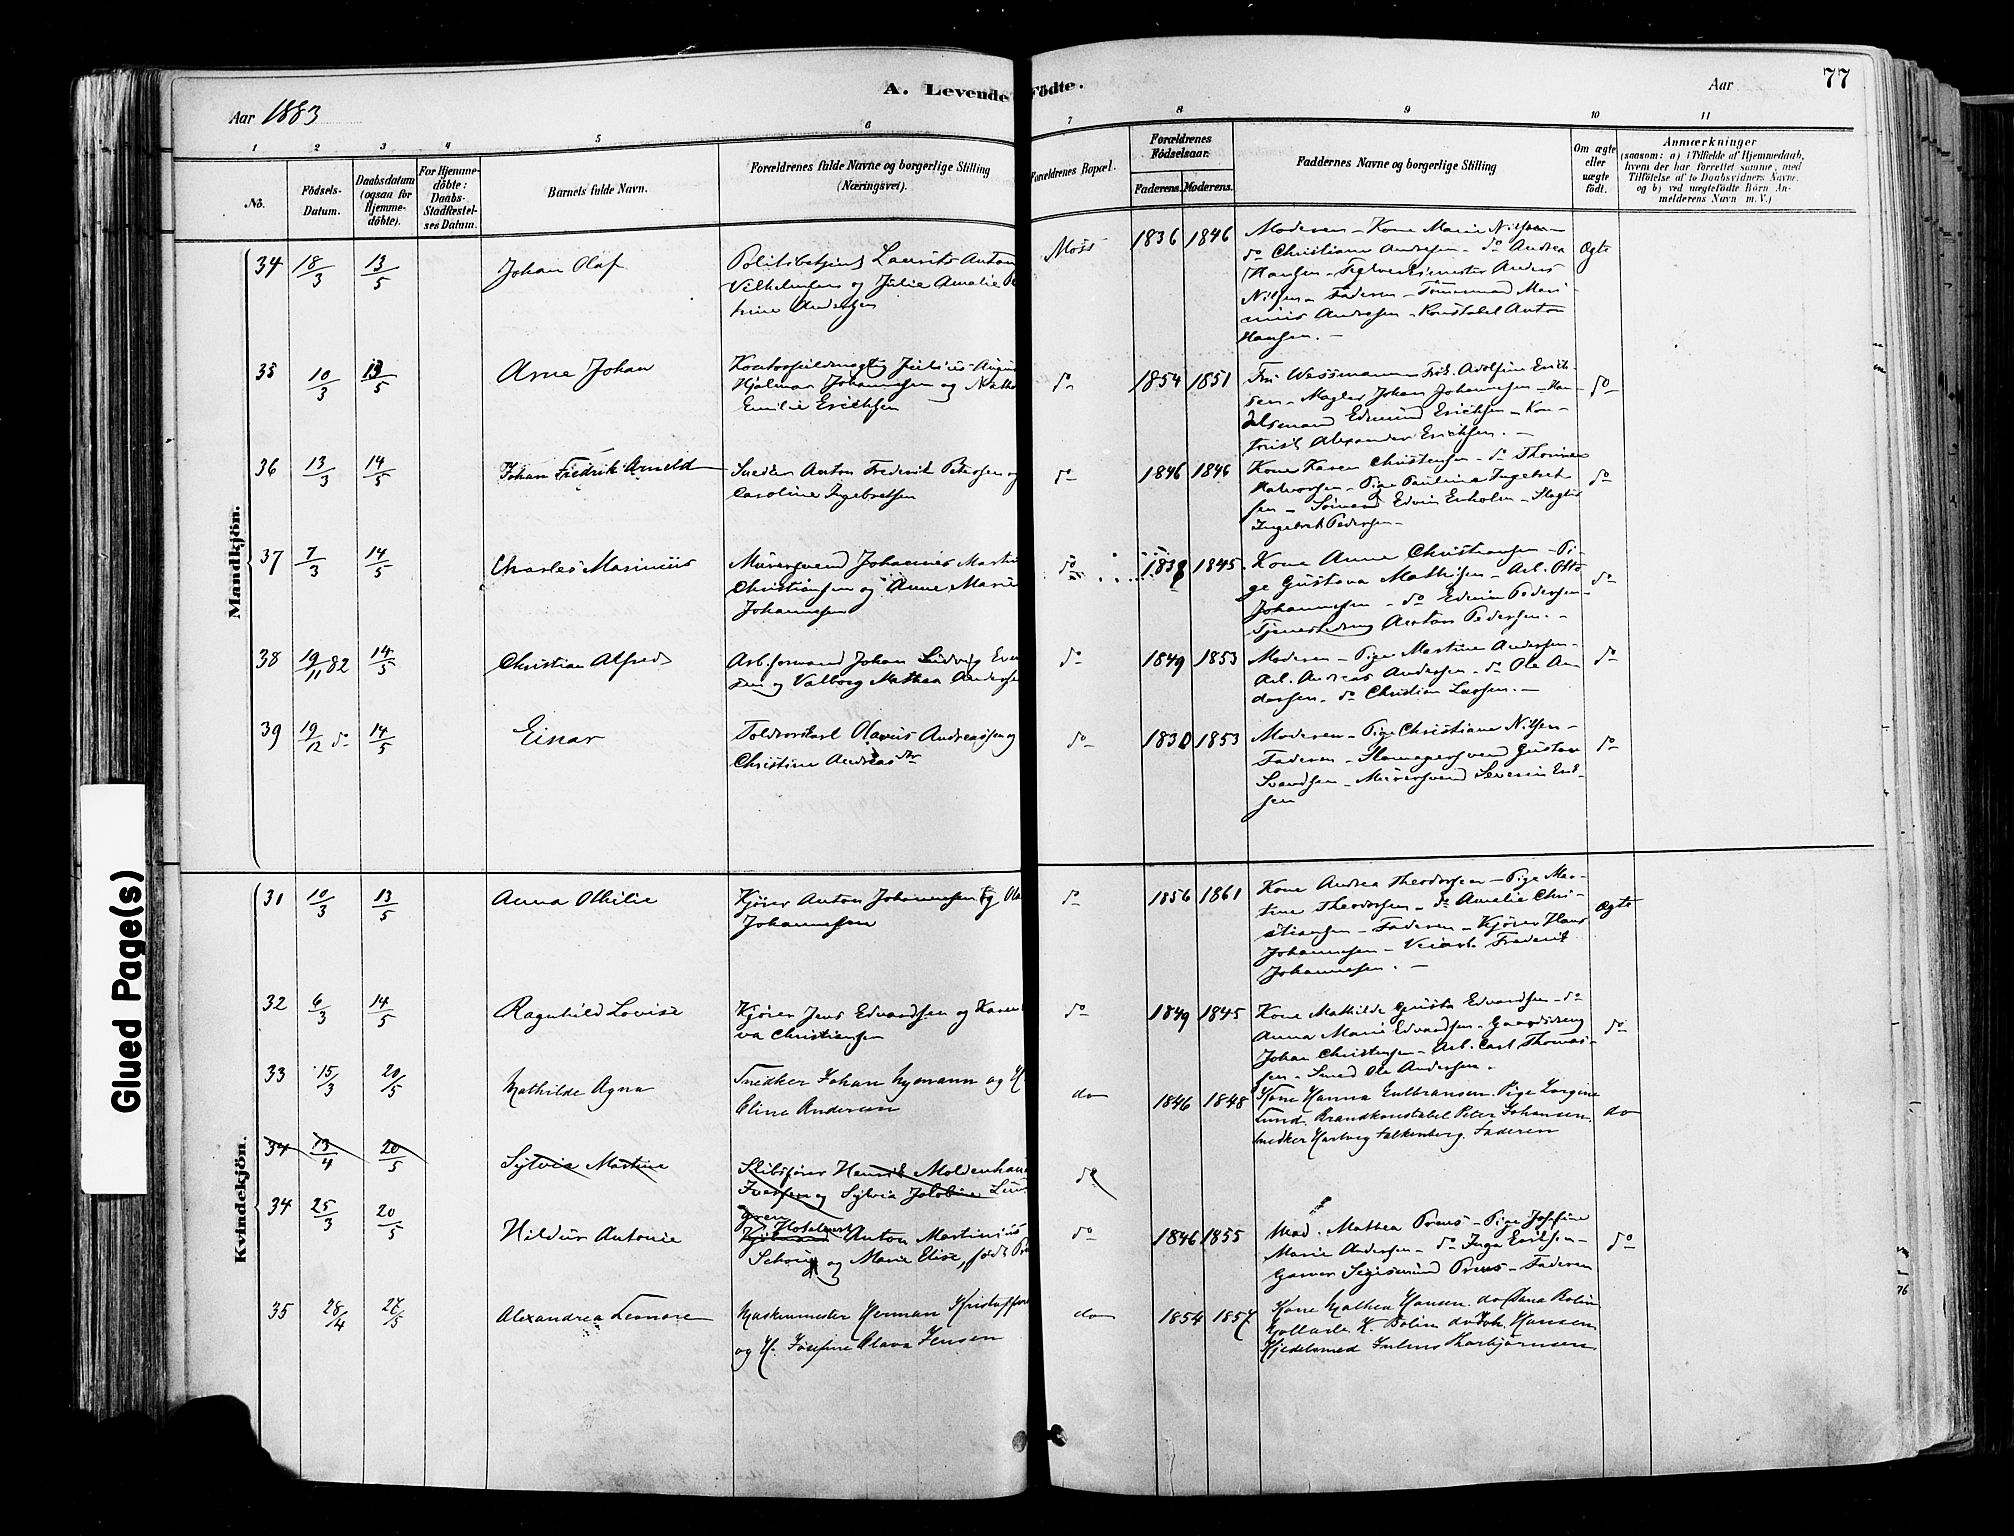 Aar 1883
A. Levende Födte.
Aar
77
1 2 3 4 5 6 7 8 9 10 11
No.
Födsels-
Datum.
Daabsdatum
(ogsaa for
Hjemme-
döbte).
For Hjemme-
döbte:
Daabs-
Stadfæstel-
ses Datum.
Barnets fulde Navn.
Forældrenes fulde Navne og borgerlige Stilling
(Næringsvei).
Forældrenes Bopæl.
Forældrenes
Födselsaar.
Faderens. Moderens.
Faddernes Navne og borgerlige Stilling
Om ægte
eller
uægte
født.
Anmærkninger
(saasom: a) i Tilfælde af Hjemmedaab,
hvem der har forrettet samme, med
Tilföielse af to Daabsvidners Navne.
og b) ved uægtefödte Börn An-
melderens Navn m. V.)
Mandkjön.
34 18/3 13/5 Johan Olaf
Politibetjent Laurits Anton
Vilhelmsen og Julie Amalie
trine Andersen
Moss 1836 1846
Moderen - Kone Marie Nilsen
do Christiane Andersen - do Andrea
Hansen - Teglverksmester Anders
Nilsen - Faderen - Tömmermand Mari-
nius Andersen - Konstabel Anton
Hansen. -
Ægte
35 10/3 13/5 Arne Johan
Kontorfuldmægtig Julius August
Hjalmar Johannesen og
Emilie Erichsen
do 1854 1851
Fru Wessmann - Frk. Adolfine Erich-
sen - Magler Johan Johannesen - Han-
delsmand Edmund Erichsen - Kon-
torist Alexander Erichsen. -
do
36 13/3 14/5 Johan Fredrik Arneld
Snedker Anton Frederik Petersen og
Caroline Ingebretsen
do 1846 1846
Kone Karen Christensen - do Thorine
Halvorsen - Pige Pauline Ingebret-
sen - Sömand Edvin Enholm - Slagter
Ingebret Pedersen -
do
37 7/3 14/5 Charles Marinius
Murersvend Johannes Martin
Christiansen og Anne Marie
Johannesen
do 1838 1845
Kone Anne Christiansen - Pi-
ge Gustava Mathisen - Arb. Otto
Johannesen - do Edvin Pedersen -
Tjenestedreng Anton Pedersen. -
do
38 19/11 82 14/5 Christian Alfred
Arb.formand Johan Ludvig
sen og Valborg Mathea Andersen
do 1849 1853
Moderen - Pige Martine Andersen -
Arb. Andreas Andersen - do Ole An-
dersen - do Christian Larsen. -
do
39 19/12 do 14/5 Einar
Toldopsynsm. Olavus Andreassen og
Christine Andreasdtr
do 1830 1853
Moderen - Pige Christiane Nilsen -
Faderen - Skomagersvend Gustav
Svendsen - Murersvend Severin Erik-
sen
do
Kvindekjön.
31 10/3 13/5 Anna Othilie
Kjörer Anton Johannesen og
Johannesen
do 1856 1861
Kone Andrea Theodorsen - Pige Mar-
tine Theodorsen - do Amalie Chri-
stiansen - Faderen - Kjörer Hans
Johannesen - Veiarb. Frederik
Johannesen. -
Ægte
32 6/3 14/5 Ragnhild Lovise
Kjörer Jens Edvardsen og Karen
va Christiansen
do 1849 1845
Kone Mathilde Gusta Edvardsen - do
Anna Marie Edvardsen - Gaardsdreng
Johan Christensen - Arb. Carl Thomas-
sen - Smed Ole Andersen. -
do
33 15/3 20/5 Mathilde Agna
Snedker Johan Nymann og H.
Oline Andersen
do 1846 1848
Kone Hanna Gulbransen. Pige Lorgine
Lund. Brandkonstabel Peter Johansen
Snedker Hartvig Falkenberg. Faderen
do
34 13/4 20/5 Sylvia Martine
Skibsförer Henrik Moldenhauer
Iversen og Sylvia Jakobine Lund-
gren
do
34 25/3 20/5 Hildur Antonie
Anton Martinius
og Marie Elise, født
do 1846 1855
Mad. Mathea Preus - Pige Josefine
Marie Andersen - do Inga Eriksen -
Garver Segismund Preus - Faderen
do
35 28/4 27/5 Alexandrea Leonore
Maskinmester Herman Kristoffer
og H. Josefine Olava Jensen
do 1854 1857
Kone Mathea Hansen. do Bolin
K. Bolin do Joh. Hansen
Kjedelsmed Julius Thorbjörnsen
Glued Page(s)
76